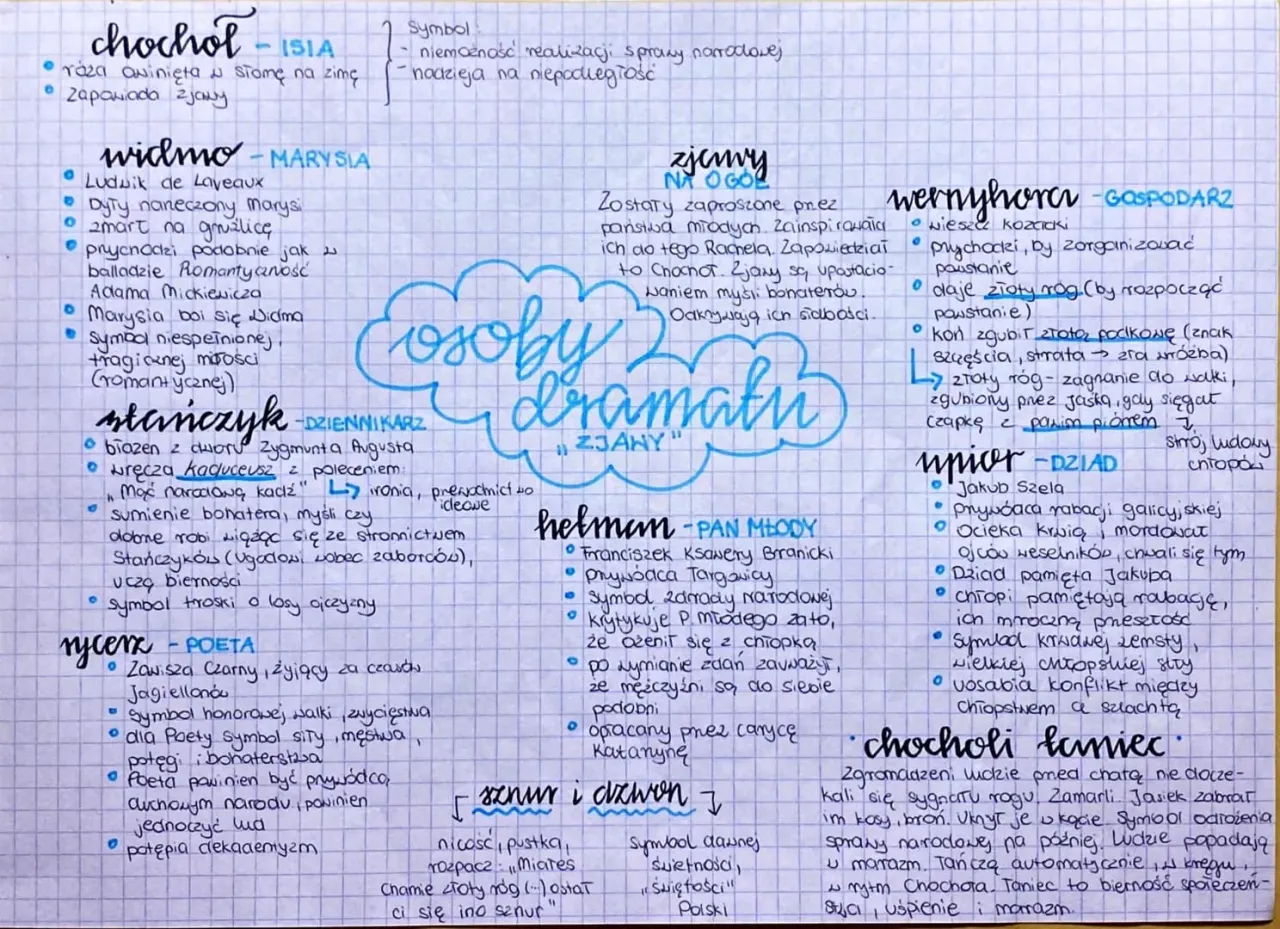 chochoł - ISIA
• róża owinięta w słomę na zimę
• zapowiada zjawy
symbol:
- niemożność realizacji sprawy narodowej
- nadzieja na niepodległość
widmo - MARYSIA
• Ludwik de Laveaux
• były narzeczony Marysi
• zmarł na gruźlicę
• przychodzi podobnie jak w
balladzie Romantyczność
Adama Mickiewicza
• Marysia boi się widma
• symbol niespełnionej,
tragicznej miłości
(romantycznej)
zjawy
NA OGÓŁ
Zostały zaproszone przez
państwa młodych. Zainspirowała
ich do tego Rachela. Zapowiedział
to Chochoł. Zjawy są upostacio-
waniem myśli bohaterów.
Odkrywają ich słabości.
wernyhora - GOSPODARZ
• wieszcz kozacki
• przychodzi, by zorganizować
powstanie
• daje złoty róg (by rozpocząć
powstanie)
• koń zgubił złotą podkowę (znak
szczęścia, strata → zła wróżba)
↳ złoty róg - zagrzanie do walki,
zgubiony przez Jaśka, gdy sięgał
czapkę z pawim piórem ↴
strój ludowy
chłopów
osoby
dramatu
"ZJAWY"
stańczyk - DZIENNIKARZ
• błazen z dworu Zygmunta Augusta
• wręcza kaduceusz z poleceniem:
„Mąć narodową kadź" ↳ ironia, przewodnictwo
ideowe
• sumienie bohatera, myśli czy
dobrze robi wiążąc się ze stronnictwem
Stańczyków (ugodowi wobec zaborców),
uczą bierności
• symbol troski o losy ojczyzny
hetman - PAN MŁODY
• Franciszek Ksawery Branicki
• przywódca Targowicy
• symbol zdrady narodowej
• krytykuje P. młodego za to,
że ożenił się z chłopką
• po wymianie zdań zauważył,
że mężczyźni są do siebie
podobni
• opłacany przez carycę
Katarzynę
upiór - DZIAD
• Jakub Szela
• przywódca rabacji galicyjskiej
• ocieka krwią, mordował
ojców weselników, chwali się tym
• Dziad pamięta Jakuba
• chłopi pamiętają rabację,
ich mroczną przeszłość
• symbol krwawej zemsty,
wielkiej chłopskiej siły
• uosabia konflikt między
chłopstwem a szlachtą
rycerz - POETA
• Zawisza Czarny, żyjący za czasów
Jagiellonów
• symbol honorowej walki, zwycięstwa
• dla Poety symbol siły, męstwa,
potęgi i bohaterstwa
• Poeta powinien być przywódcą
duchowym narodu, powinien
jednoczyć lud
• potępia dekadentyzm
sznur i dzwon
nicość, pustka,
rozpacz: „Miałeś
chamie złoty róg (...) ostał
ci się ino sznur"
symbol dawnej
świetności,
„świętości"
Polski
• chocholi taniec •
Zgromadzeni ludzie przed chatą nie docze-
kali się sygnału rogu. Zamarli. Jasiek zabrał
im kosy, broń. Ukrył je w kącie. Symbol odłożenia
sprawy narodowej na później. Ludzie popadają
w marazm. Tańczą automatycznie, w kręgu,
w rytm Chochoła. Taniec to bierność społeczeń-
stwa, uśpienie i marazm.